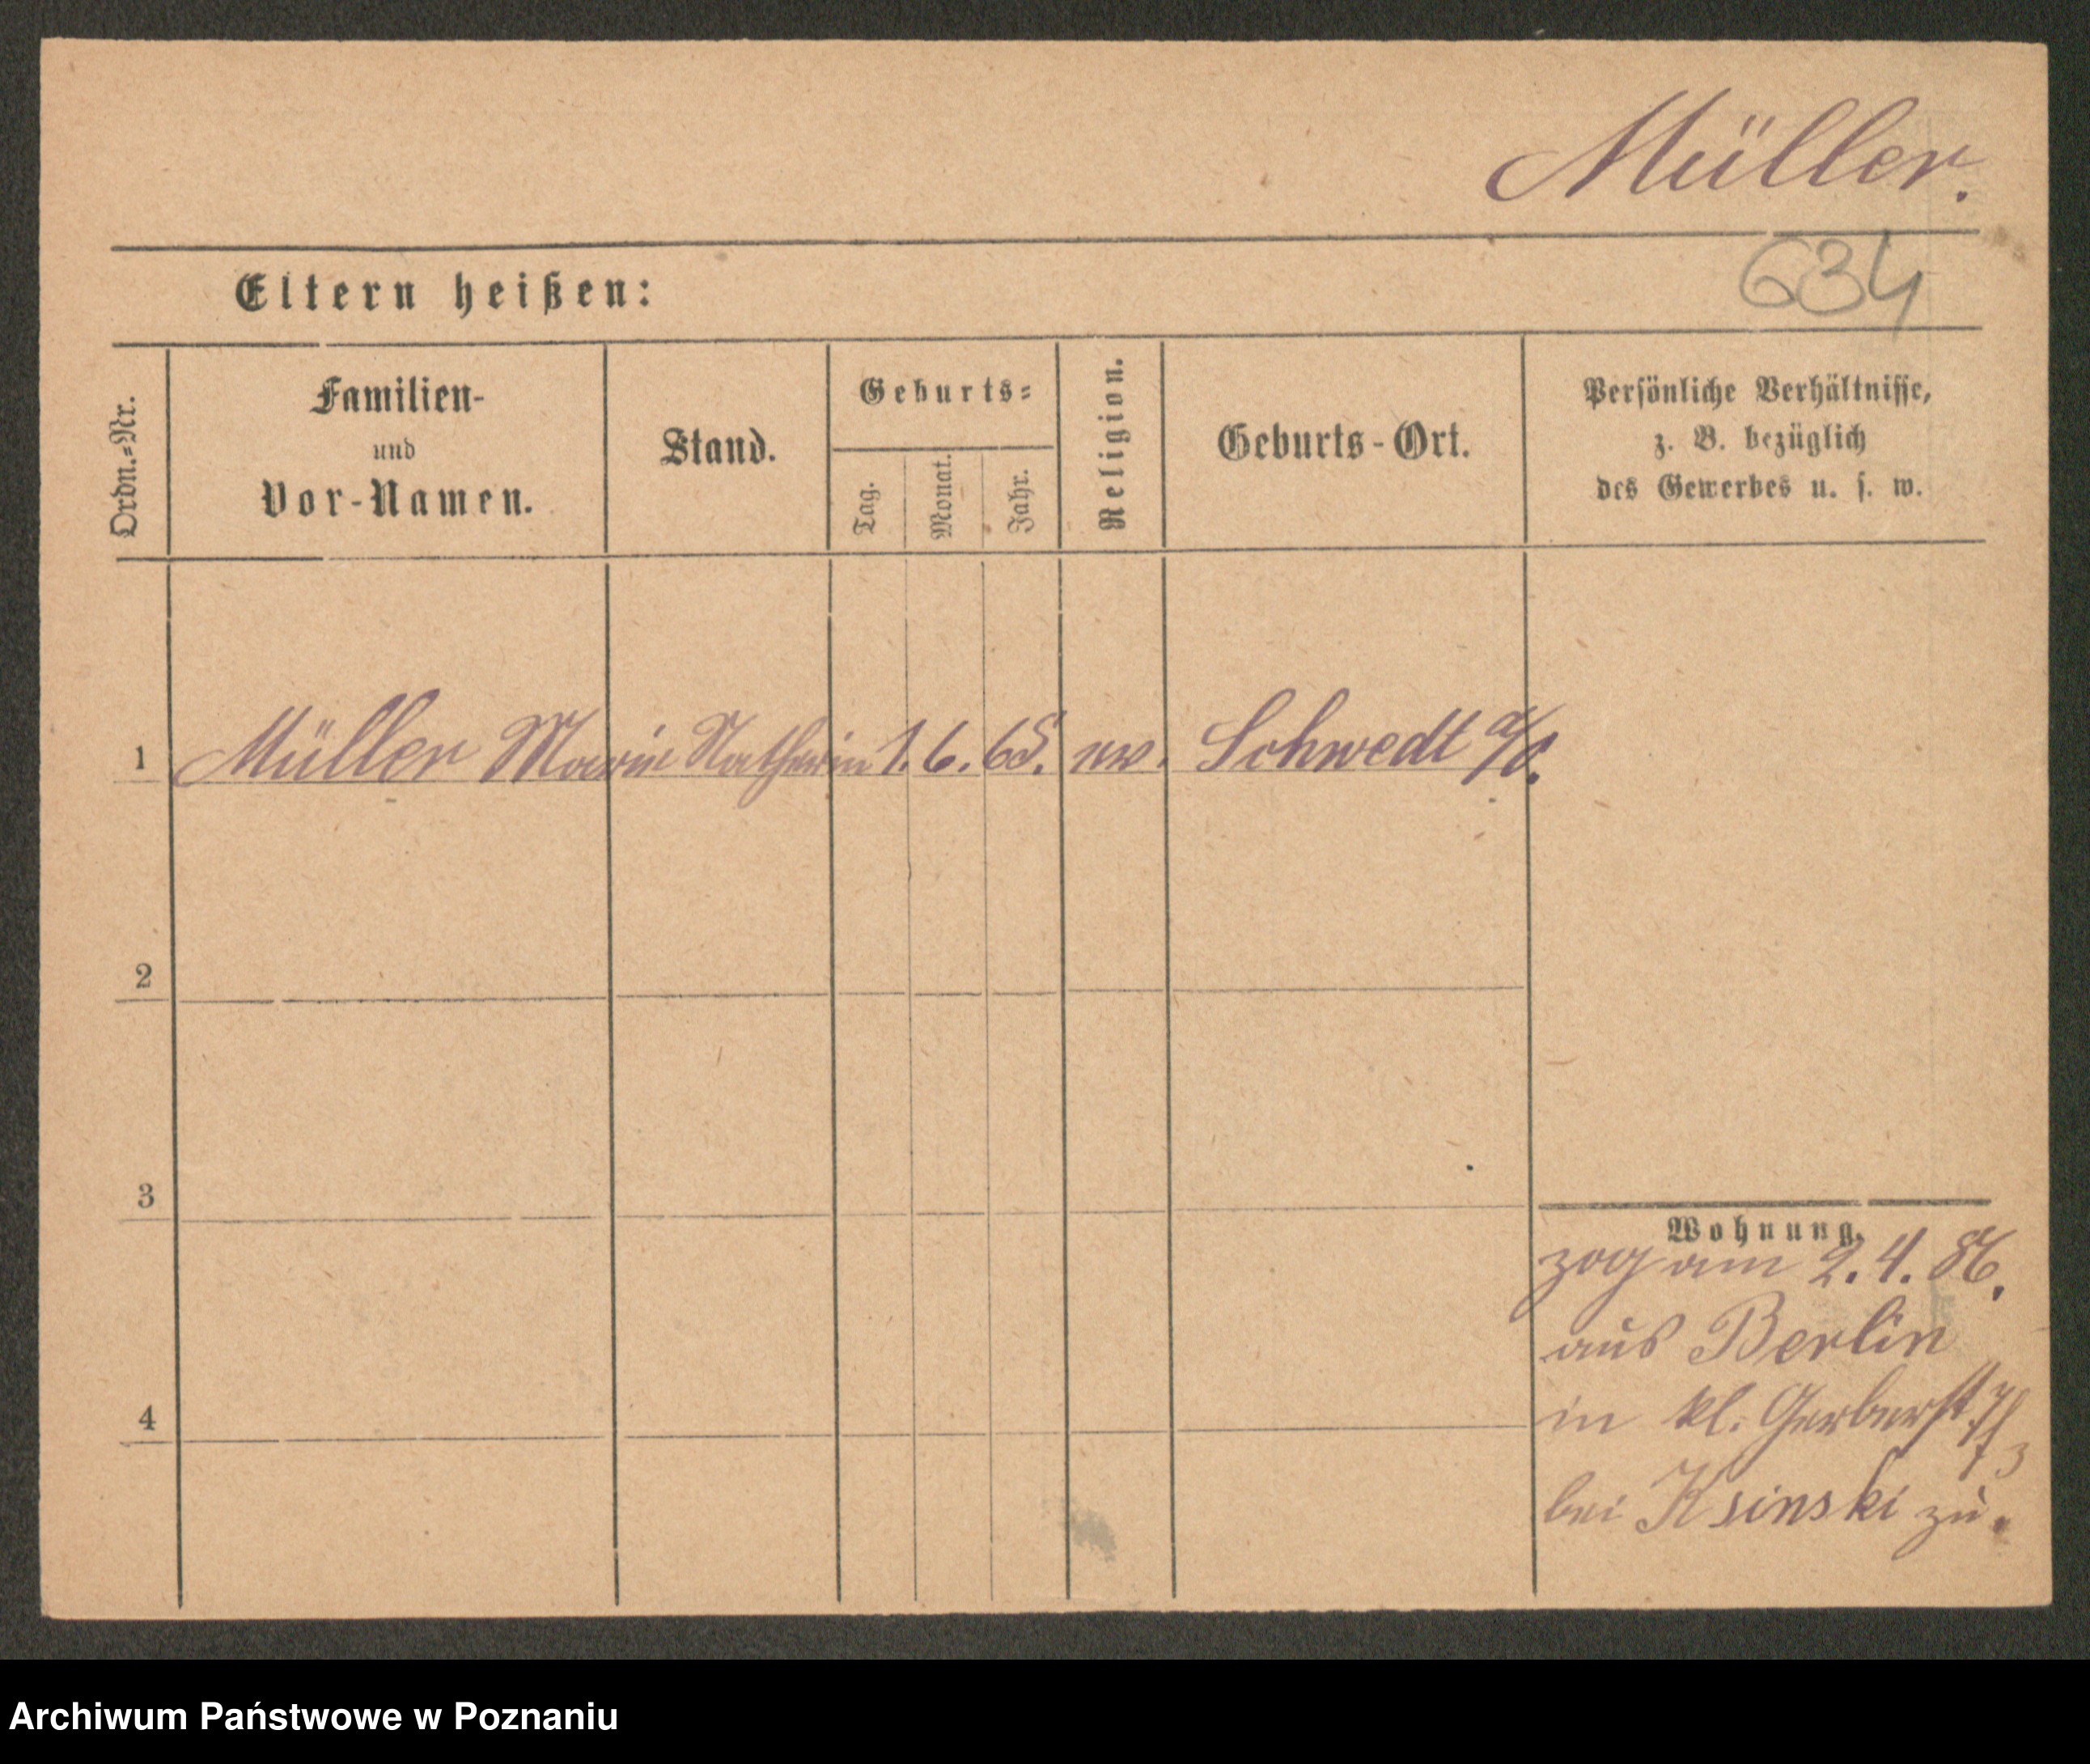 Müller.
634
Eltern heißen:
Ordn.-Nr.
Familien-
und
Vor-Namen.
Stand.
Geburts-
Tag.
Monat.
Jahr.
Religion.
Geburts-Ort.
Persönliche Verhältnisse,
z. B. bezüglich
des Gewerbes u. s. w.
1 Müller Marie 1. 6. 65. ev. Schwedt a/O.
2
3
4
Wohnung.
zog am 2. 4. 86.
aus Berlin
in kl. Gerberst.
bei Ksinski zu.
Archiwum Państwowe w Poznaniu